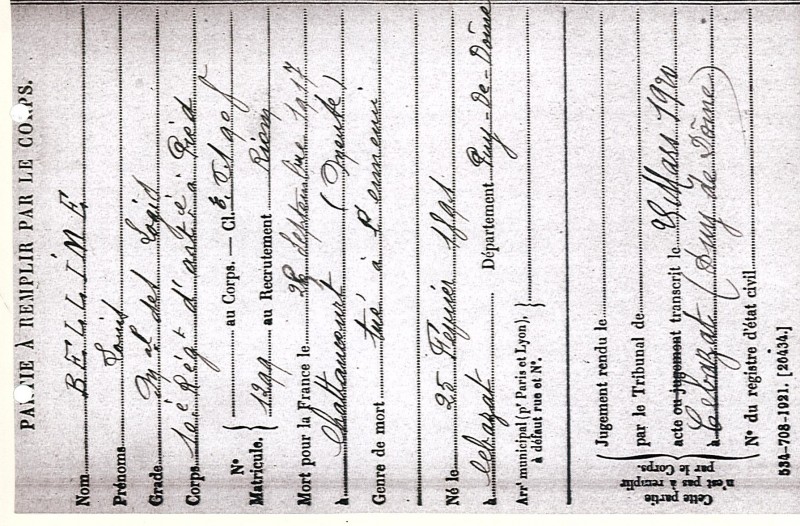 PARTIE À REMPLIR PAR LE CORPS.
Nom BELLIME
Prénoms Louis
Grade Mal des Logis
Corps 1er Régt d'artie à Pied
N° Matricule. { au Corps. — Cl.
1299 au Recrutement Riom
Mort pour la France le 28 septembre 1917
à Chattancourt (Meuse)
Genre de mort tué à l'ennemi
Né le 25 Février 1891
à Cébazat Département Puy-De-Dôme
Arrt municipal (pr Paris et Lyon),
à défaut rue et N°. }
Cette partie
n'est pas à remplir
par le Corps.
Jugement rendu le
par le Tribunal de
acte ou jugement transcrit le 28 Mars 1920
à Cébazat (Puy de Dôme)
N° du registre d'état civil
534-708-1921. [26434.]